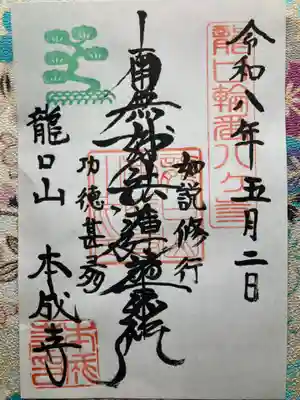 龍口輪番八ヶ寺
令和八年五月二日
如説修行
南無妙法蓮華経
功徳甚多
龍口山 本成寺